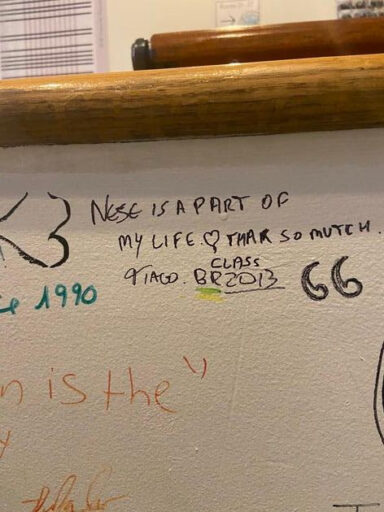 <3
NESE IS A PART OF
MY LIFE ♡ THAR SO MUTCH.
CLASS
TIAGO. BR2013 66
1990
is the"